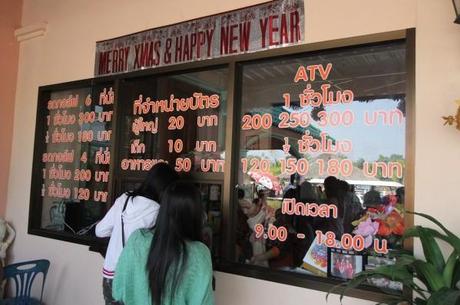 MERRY XMAS & HAPPY NEW YEAR
รถกอล์ฟ 6 ที่นั่ง
1 ชั่วโมง 300 บาท
½ ชั่วโมง 180 บาท
รถกอล์ฟ 4 ที่นั่ง
1 ชั่วโมง 200 บาท
½ ชั่วโมง 120 บาท
ที่จำหน่ายบัตร
ผู้ใหญ่ 20 บาท
เด็ก 10 บาท
50 บาท
ATV
1 ชั่วโมง
200 250 300 บาท
½ ชั่วโมง
120 150 180 บาท
เปิดเวลา
9.00 - 18.00 น